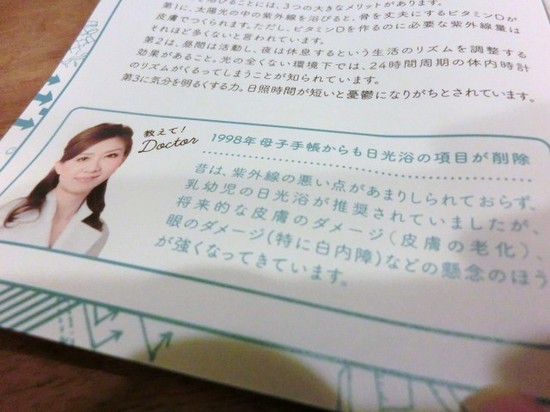 を浴びることには、3つの大きなメリットがあります。
第1に、太陽光の中の紫外線を浴びると、骨を丈夫にするビタミンDが
皮膚でつくられます。ただし、ビタミンDを作るのに必要な紫外線量は
それほど多くないと言われています。
第2は、昼間は活動し、夜は休息するという生活のリズムを調整する
効果があること。光の全くない環境下では、24時間周期の体内時計
のリズムがくるってしまうことが知られています。
第3に気分を明るくする力。日照時間が短いと憂鬱になりがちとされています。
教えて!
Doctor
1998年母子手帳からも日光浴の項目が削除
昔は、紫外線の悪い点があまりしられておらず、
乳幼児の日光浴が推奨されていましたが、
将来的な皮膚のダメージ(皮膚の老化)、
眼のダメージ(特に白内障)などの懸念のほう
が強くなってきています。